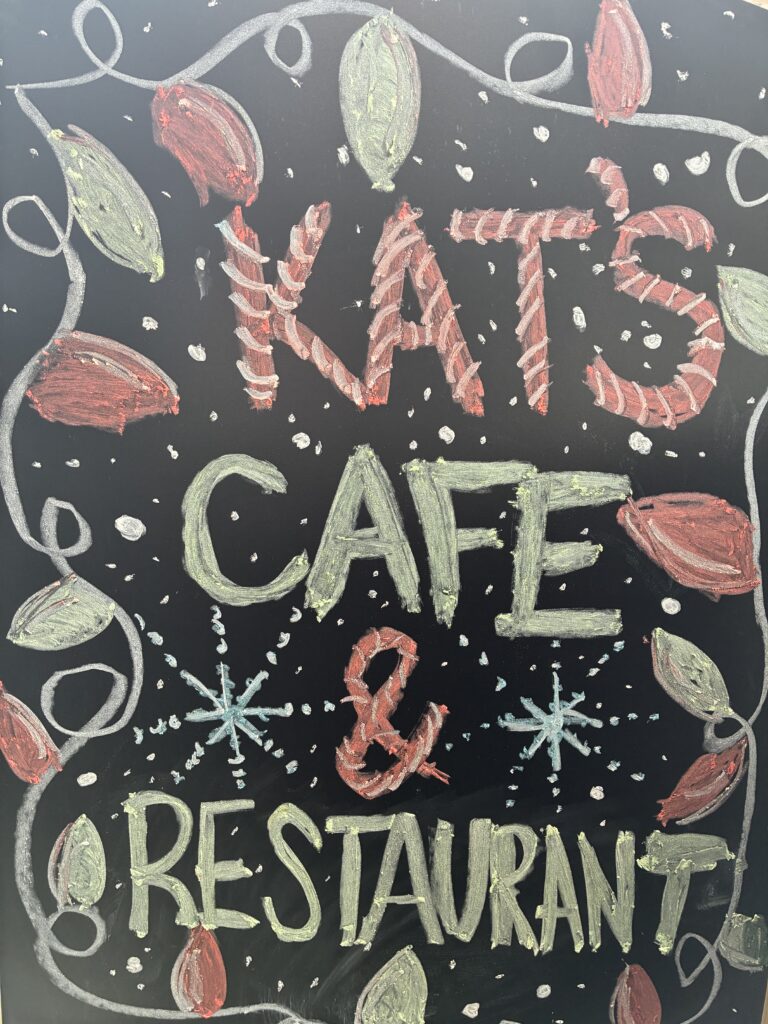 KAT'S
CAFE
&
RESTAURANT